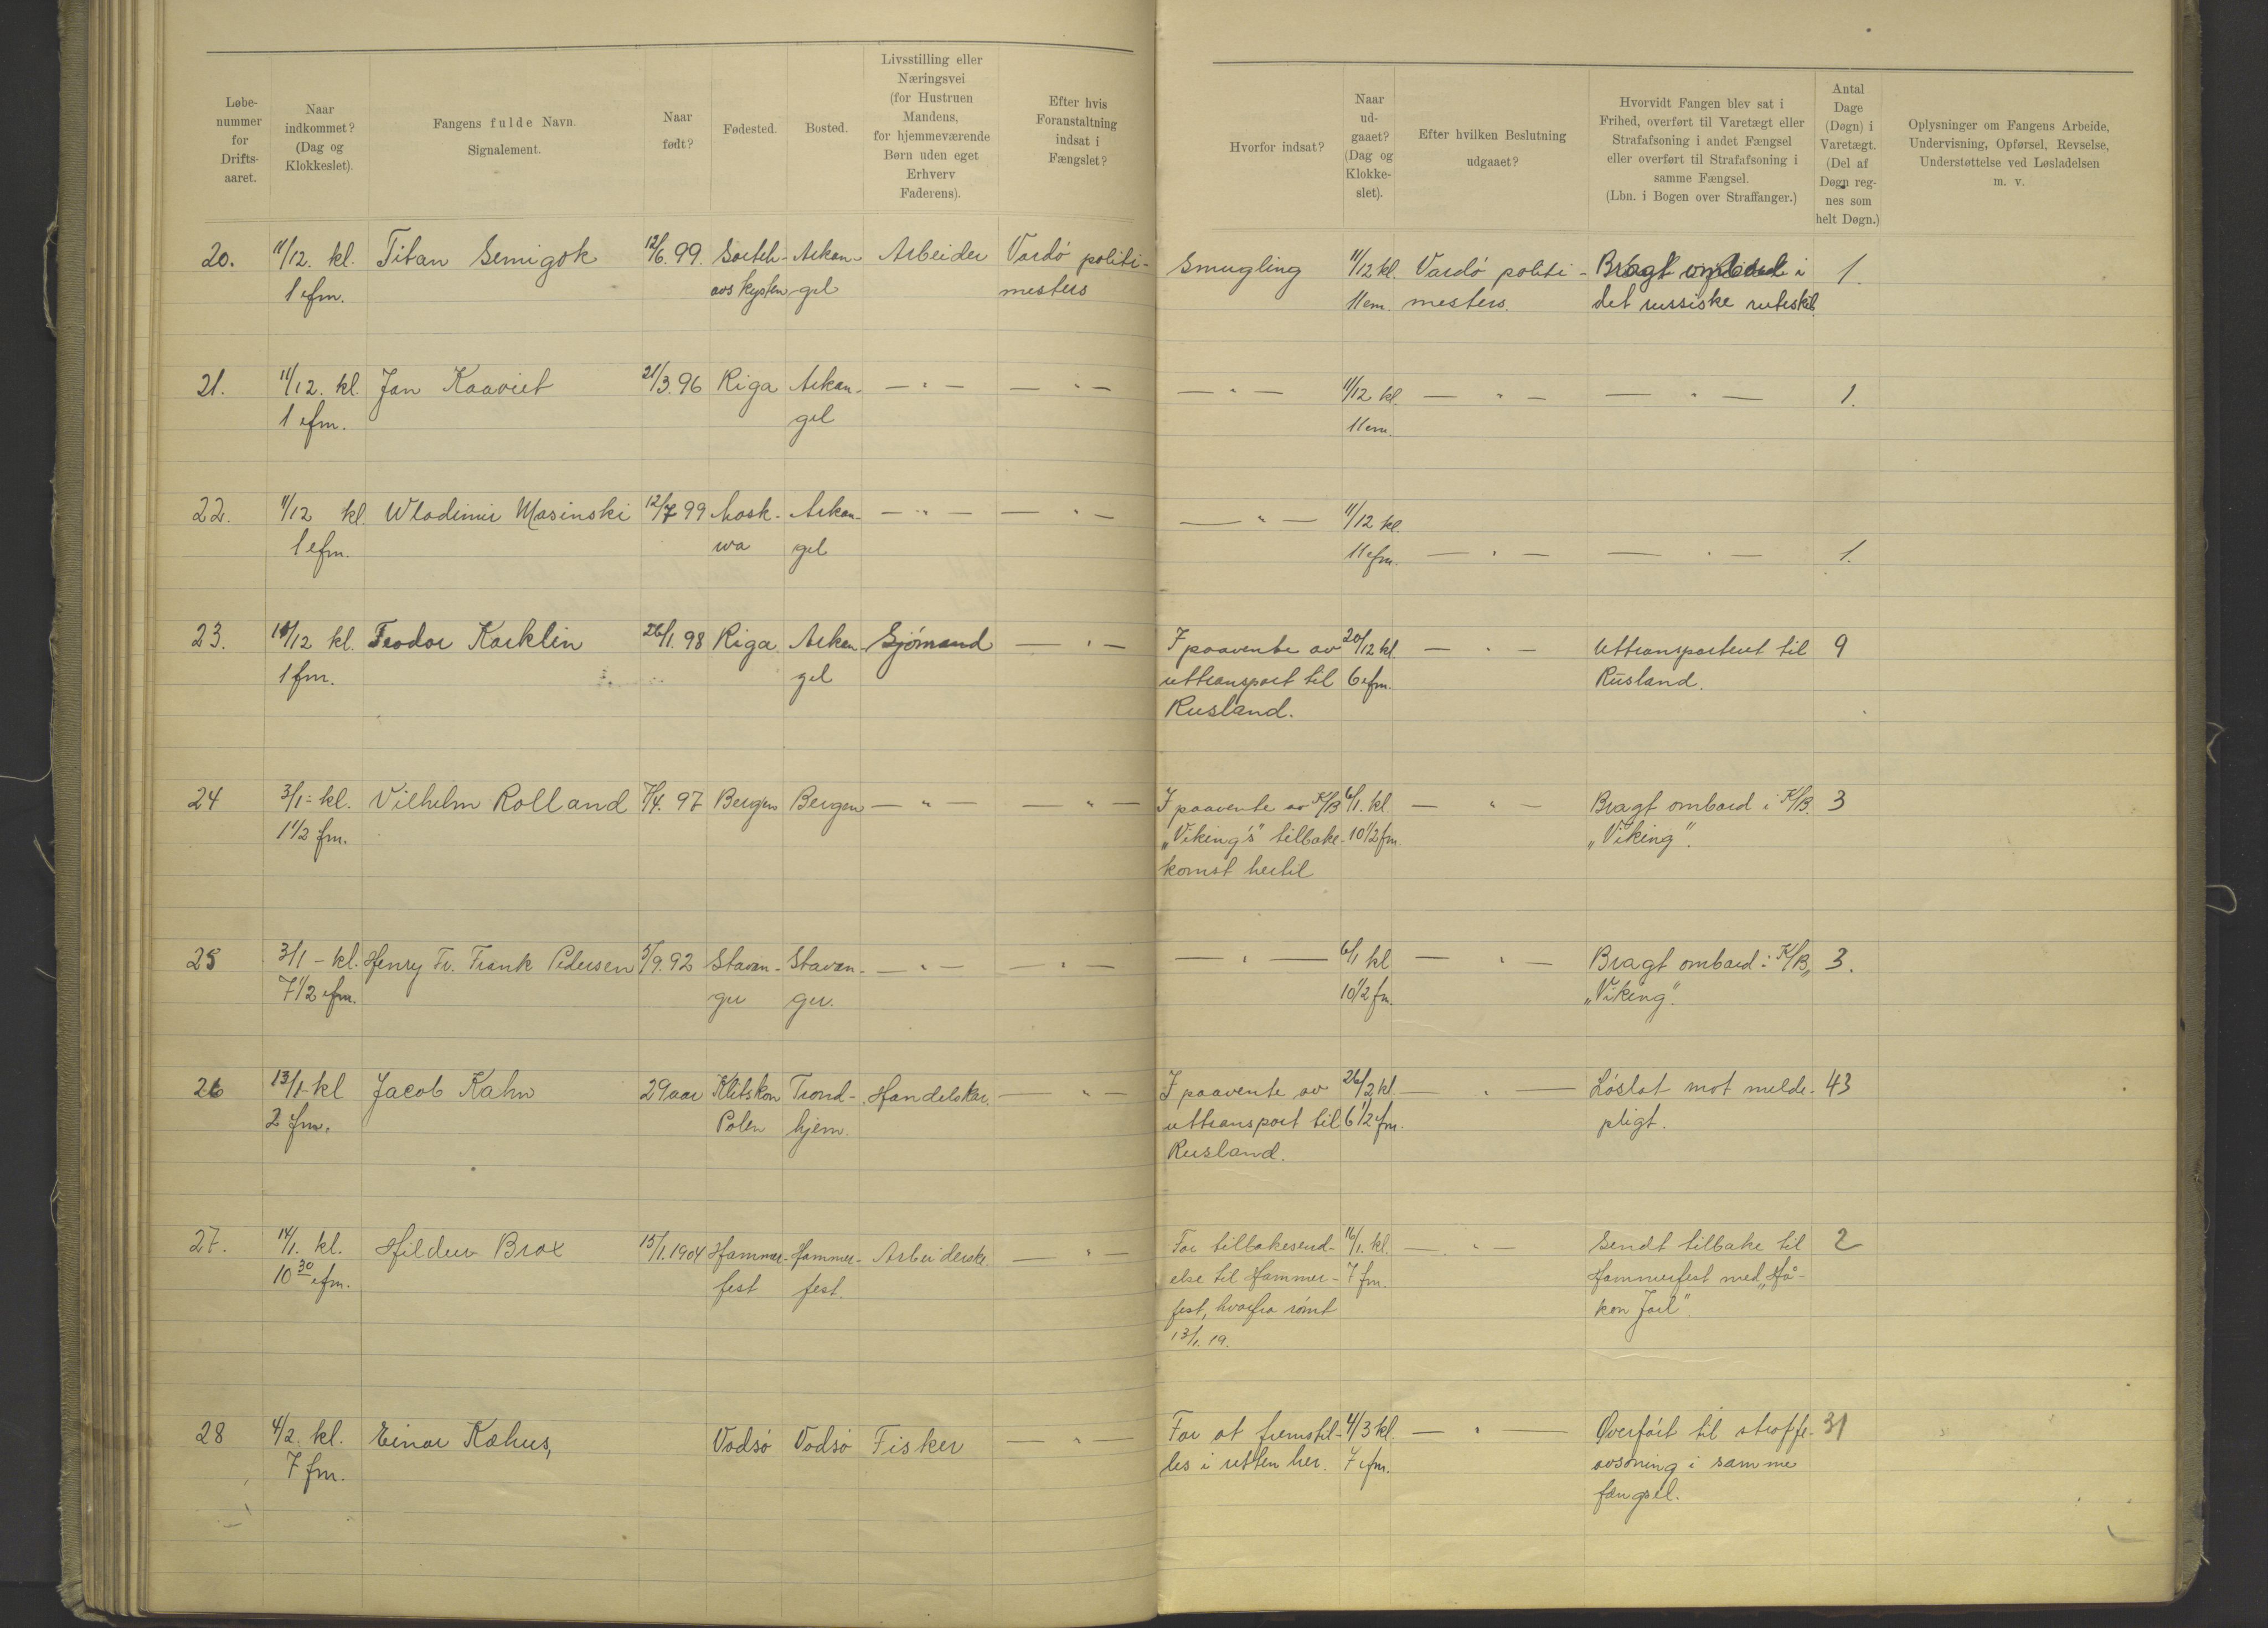 Løbe-
nummer
for
Drifts-
aaret.
Naar
indkommet?
(Dag og
Klokkeslet).
Fangens fulde Navn.
Signalement.
Naar
født?
Fødested.
Bosted.
Livsstilling eller
Næringsvei
(for Hustruen
Mandens,
for hjemmeværende
Børn uden eget
Erhverv
Faderens).
Efter hvis
Foranstaltning
indsat i
Fængslet?
Hvorfor indsat?
Naar
ud-
gaaet?
(Dag og
Klokke-
slet).
Efter hvilken Beslutning
udgaaet?
Hvorvidt Fangen blev sat i
Frihed, overført til Varetægt eller
Strafafsoning i andet Fængsel
eller overført til Strafafsoning i
samme Fængsel.
(Lbn. i Bogen over Straffanger.)
Antal
Dage
(Døgn) i
Varetægt.
(Del af
Døgn reg-
nes som
helt Døgn.)
Oplysninger om Fangens Arbeide,
Undervisning, Opførsel, Revselse,
Understøttelse ved Løsladelsen
m. v.
20. 11/12. kl. Titan Semigok 12/6. 99. Arkan- Arbeider Vardö politi- Smugling 11/12 kl. Vardö politi- Bragt ombord i 1.
1 efm. kysten gel mesters 11 em. mesters. det russiske ruteskib
21. 11/12. kl. Jan Kaaviet 21/3. 96 Riga Arkan- — " — — " — — " — 11/12 kl. — " — — " — 1.
1 efm. gel 11 em.
22. 11/12 kl. Wladimir Masinski 12/7 99 Mosk- Arkan- — " — — " — — " — 11/12 kl.
1 efm. wa gel 11 efm. — " — — " — 1.
23. kl. Feodor Karklin 26/1. 98 Riga Arkan- Sjömand — " — I paavente av 20/12 kl. — " — Uttransportert til 9
1 fm. gel uttransport til 6 efm. Rusland.
Rusland.
24 3/1 - kl. Vilhelm Rolland 7/4. 97 Bergen Bergen — " — — " — I paavente av K/B 6/1. kl. — " — Bragt ombord i K/B. 3
1 1/2 fm. „Viking's" tilbake- 10 1/2 fm. „Viking".
komst hertil
25 3/1 - kl. Henry Fr. Frank Pedersen 5/9. 92 Stavan- Stavan- — " — — " — — " — 6/1 kl — " — Bragt ombord i K/B, 3.
7 1/2 efm. ger ger. 10 1/2 fm. „Viking".
26 13/1 - kl Jacob Kahn 29 aar Klitskon Trond- Handelskar. — " — I paavente av 26/2 kl. — " — Löslat mot melde- 43
2 fm. Polen hjem. uttransport til 6 1/2 efm. pligt.
Rusland.
27. 14/1. kl. Hildur Brox 15/1. 1904 Hammer- Hammer- Arbeiderske. — " — For tilbakesend- 16/1. kl. — " — Sendt tilbake til 2
10 30 efm. fest fest. else til Hammer- 7 fm. Hammerfest med „Hå-
fest, hvorfra römt kon Jarl".
13/1. 19.
28 4/2. kl. Einar Kæhus, Vadsö Vadsö Fisker — " — For at fremstil- 4/3 kl. — " — Overfört til straffe- 31
7 fm. les i retten her. 7 efm. avsoning i samme
fængsel.